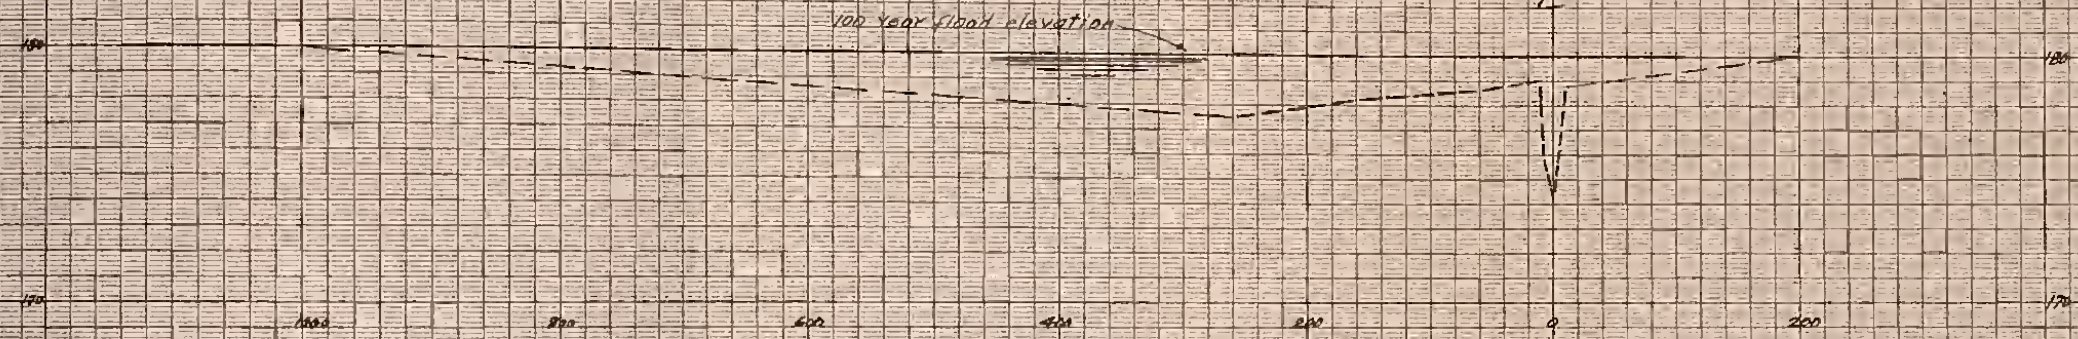 100 Year flood elevation
180 180
170 170
1000 800 600 400 200 0 200